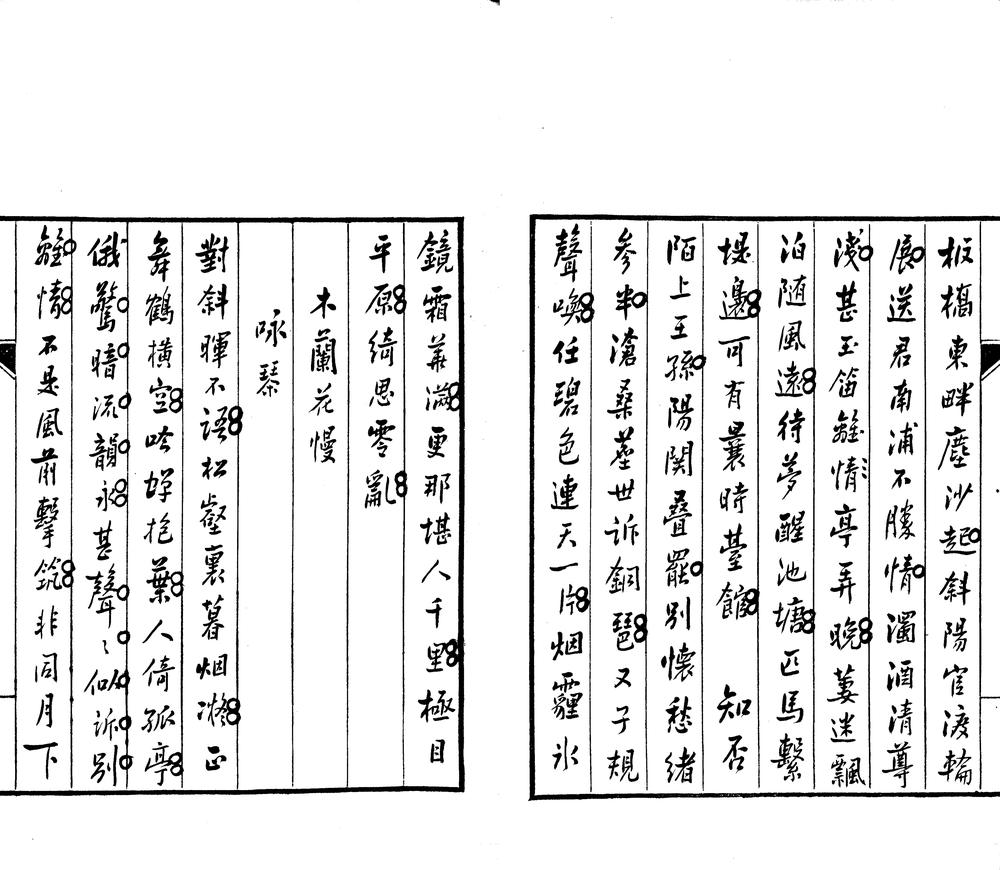 板橋東畔塵沙起斜陽官渡輪
展送君南浦不勝情濁酒清尊
淺甚玉笛離情亭弄晚萋迷飄
泊随風遠待夢醒池塘匹馬繫
堤邊可有曩時臺館　知否
陌上王孫陽関疊罷別懷愁緒
参半滄桑塵世訴銅琶又子規
聲喚任碧色連天一片烟霾氷
鏡霜華滋更那堪人千里極目
平原綺思零亂
木蘭花慢
咏琴
對斜暉不語松壑裏暮烟凝正
舞鶴橫空吟蟬抱葉人倚孤亭
俄驚暗流韻永甚聲〻似訴別
離情不是風前擊筑非同月下